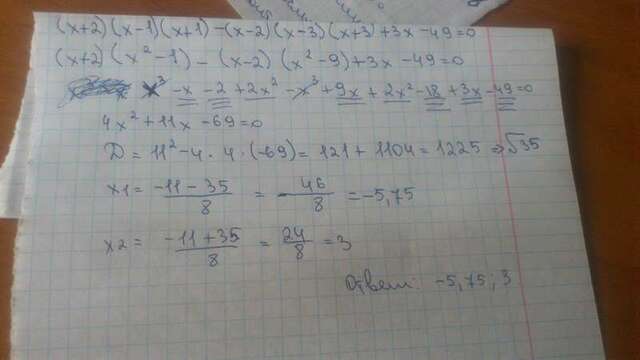 (x+2)(x-1)(x+1)-(x-2)(x-3)(x+3)+3x-49=0
(x+2)(x²-1)-(x-2)(x²-9)+3x-49=0
x³-x-2+2x²-x³+9x+2x²-18+3x-49=0
4x²+11x-69=0
D=11²-4·4·(-69)=121+1104=1225 ⇒√35
x1= -11-35/8 = -46/8 =-5,75
x2= -11+35/8 = 24/8 =3
Ответ: -5,75; 3